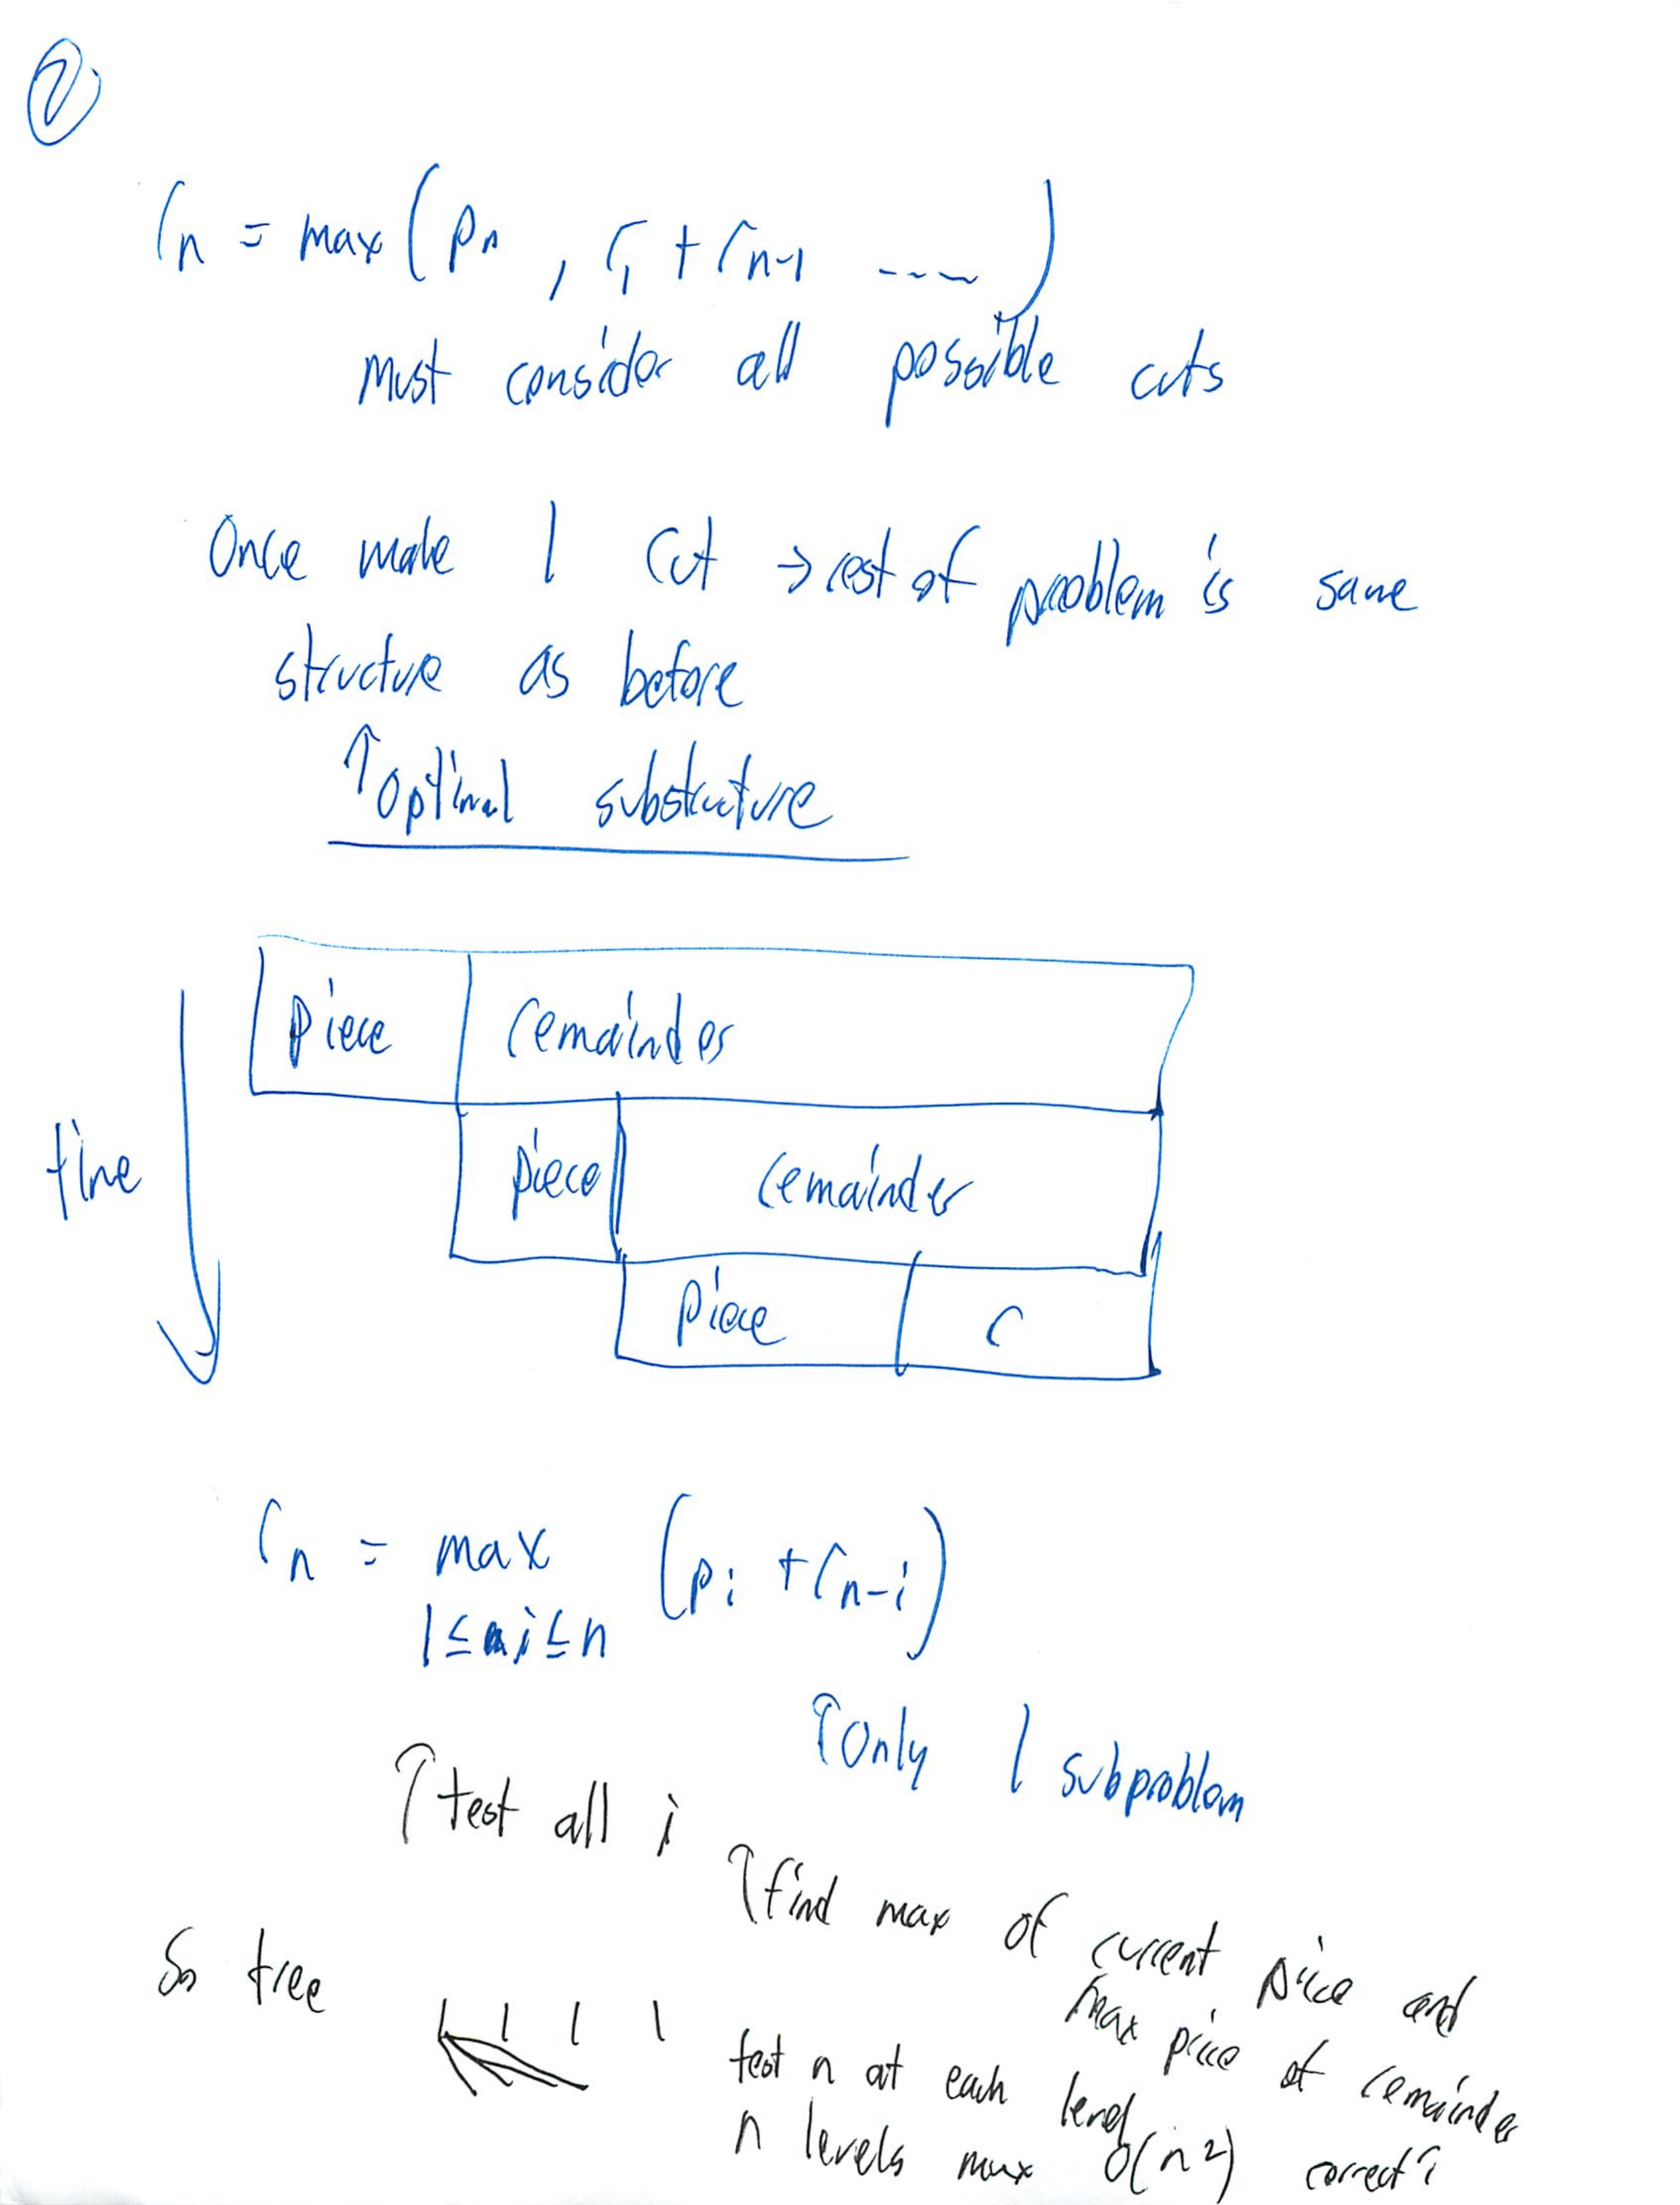 ②
r_n = max(p_n, r_1 + r_{n-1} ....)
must consider all possible cuts
Once make 1 cut → rest of problem is same
structure as before
↑optimal substructure
piece remainder
time
piece remainder
piece r
r_n = max (p_i + r_{n-i})
1≤i≤n
↑only 1 subproblem
↑test all i
↑find max of current price and
max price of remainder
So tree
test n at each level
n levels max O(n2) correct?